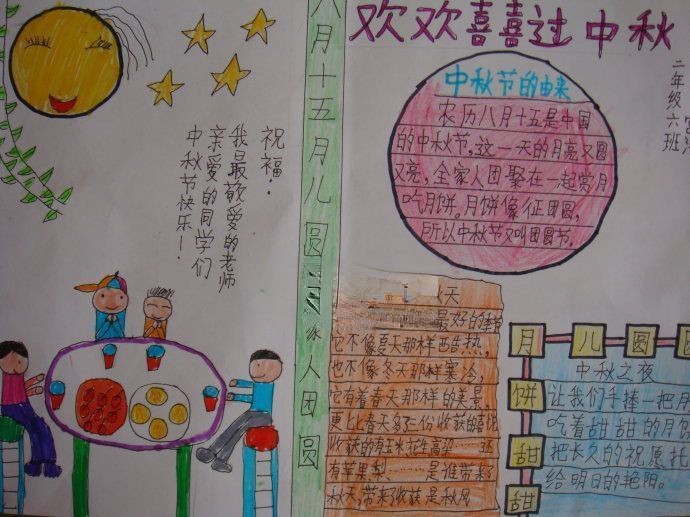 欢欢喜喜过中秋
二年级六班
中秋节的由来
农历八月十五是中国
的中秋节,这一天的月亮又圆
又亮,全家人团聚在一起赏月
吃月饼。月饼像征团圆,
所以中秋节又叫团圆节。
祝福:
我最敬爱的老师
亲爱的同学们
中秋节快乐!
八月十五月儿圆
人团圆
天
最好的季节
它不像夏天那样酷热,
也不像冬天那样寒冷,
它有着春天那样的美景,
更比春天多
收获的喜悦
收获的有玉米花生高粱……还
有苹果梨……是谁带来
秋天,带来收获是秋风
月儿圆
饼甜甜
中秋之夜
让我们手捧一把月
吃着甜甜的月饼
把长久的祝愿托
给明日的艳阳。